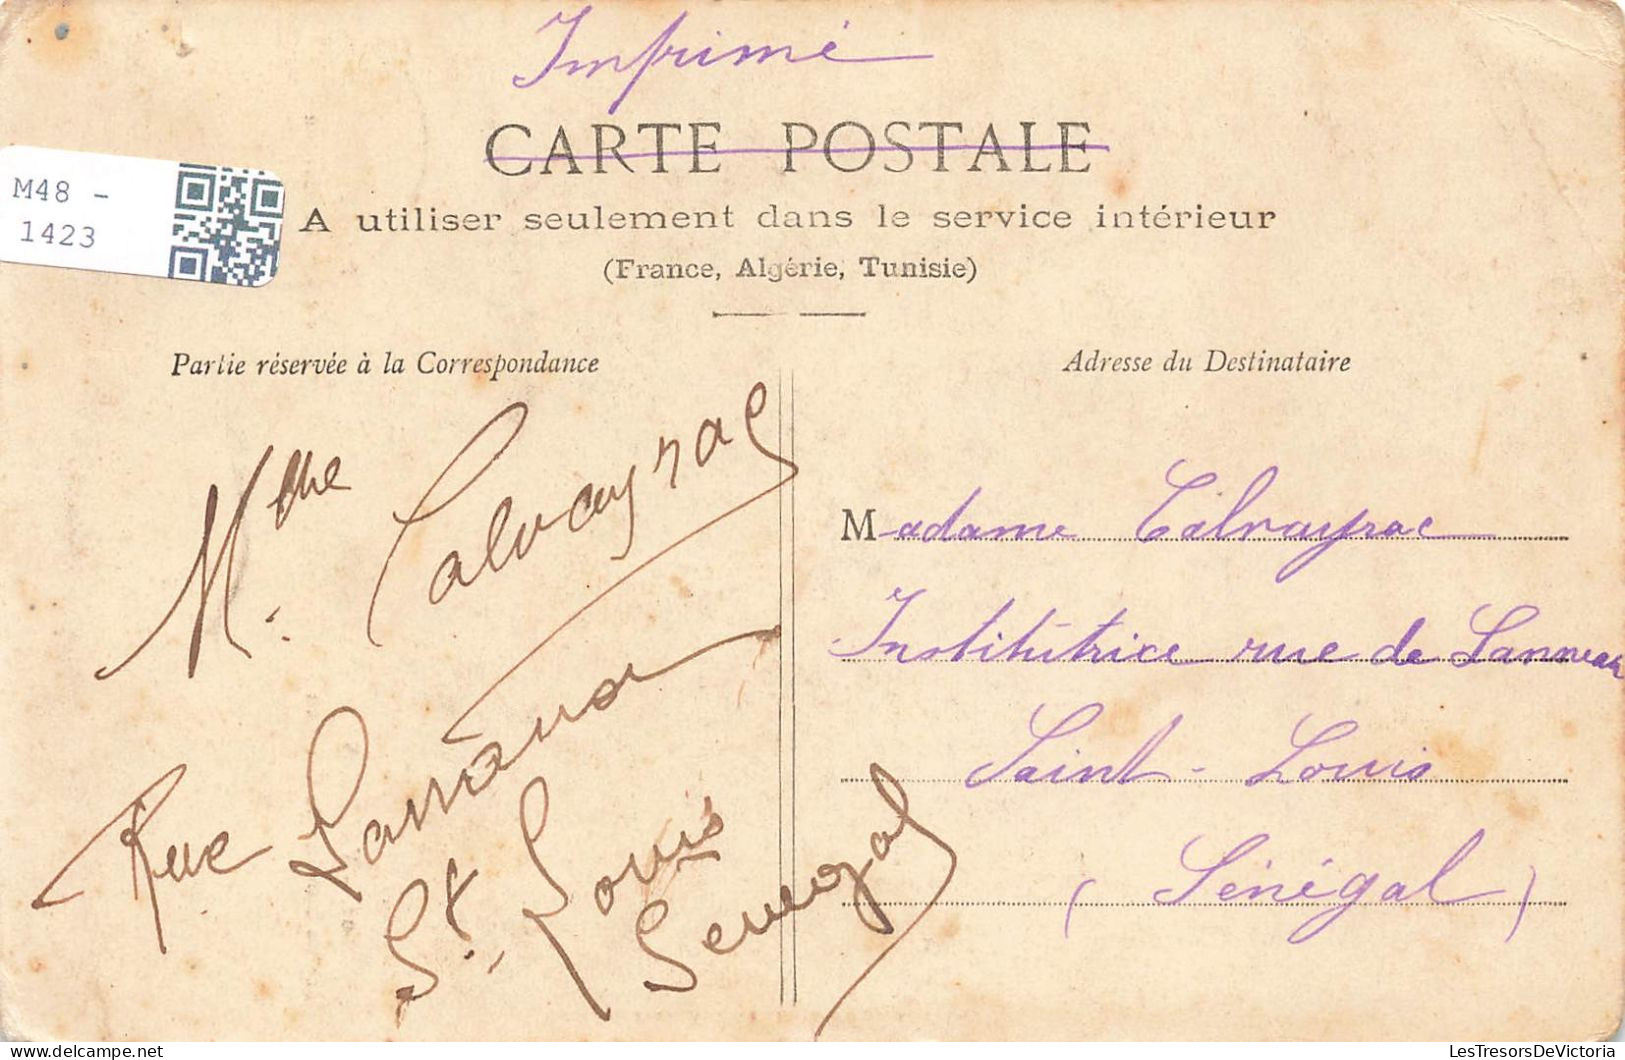 Imprimé
CARTE POSTALE
M48 -
1423
A utiliser seulement dans le service intérieur
(France, Algérie, Tunisie)
Partie réservée à la Correspondance
Adresse du Destinataire
Mme Calvayrac
Rue
St. Louis
Senegal
Madame Calvayrac
Institutrice rue de Lanneau
Saint-Louis
(Sénégal)
LesTresorsDeVictoria